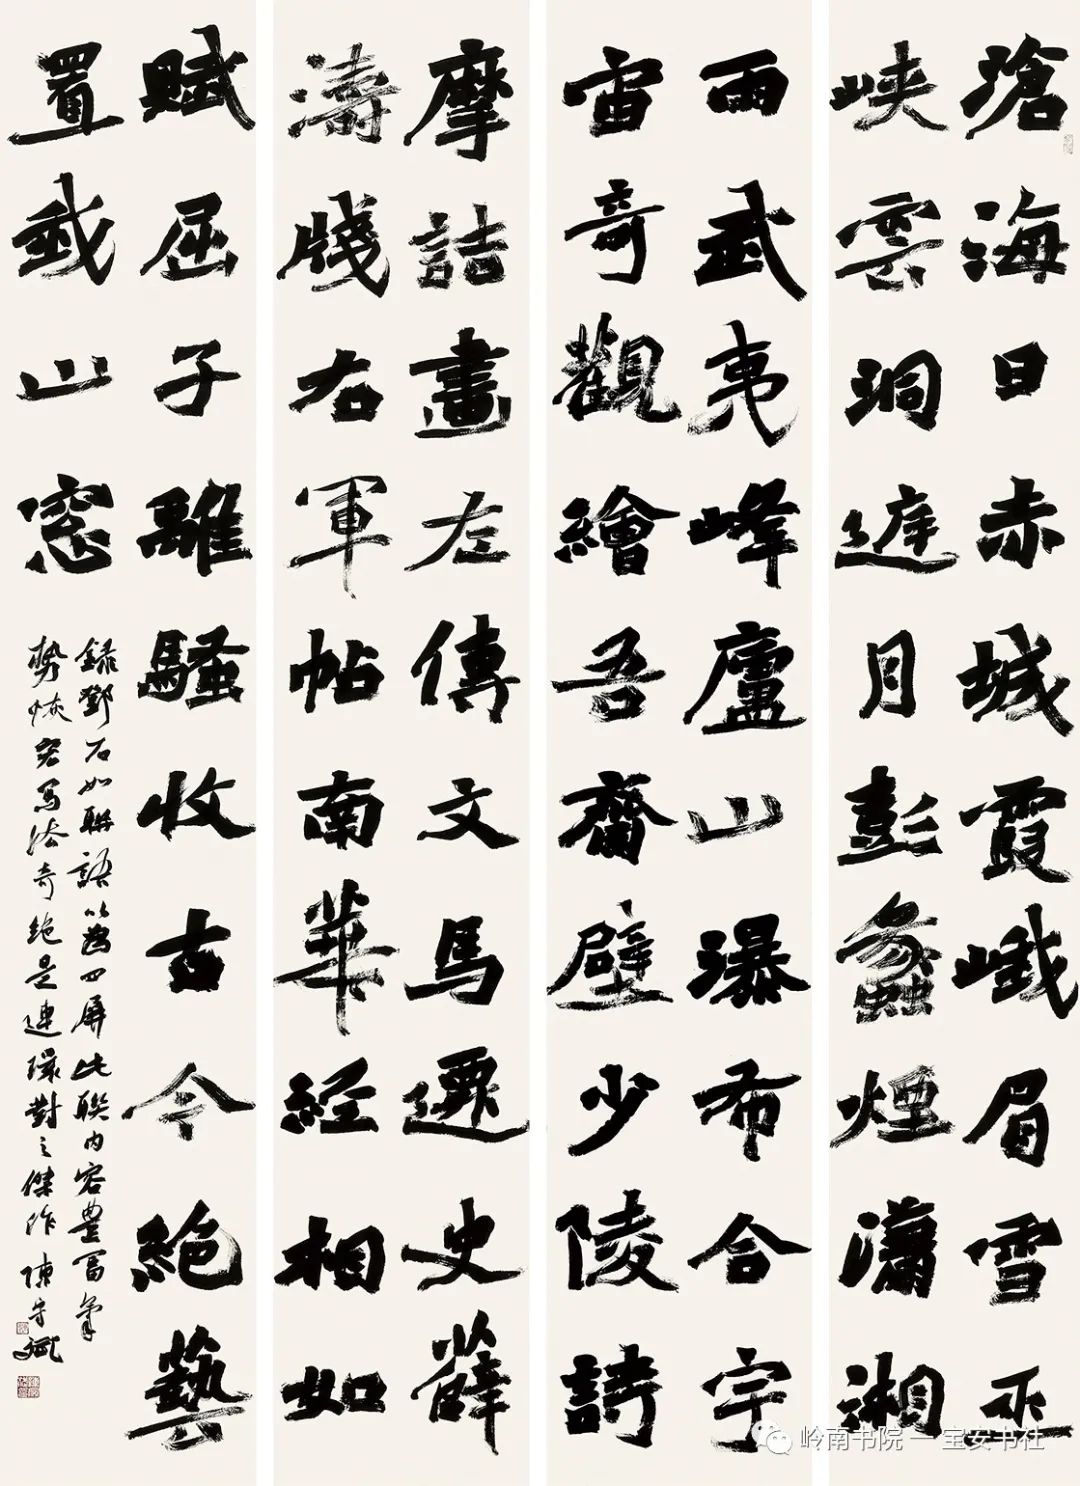 滄海日赤城霞峨眉雪巫
峽雲洞庭月彭蠡煙瀟湘
雨武夷峰廬山瀑布合宇
宙奇觀繪吾齋壁少陵詩
摩詰畫左傳文馬遷史薛
濤牋右軍帖南華經相如
賦屈子離騷收古今絕藝
置我山窓
錄鄧石如聯語以為四屏此聯内容豐富氣
勢恢宏寫法奇絕是連環對之傑作 陳守
岭南书院 — 宝安书社